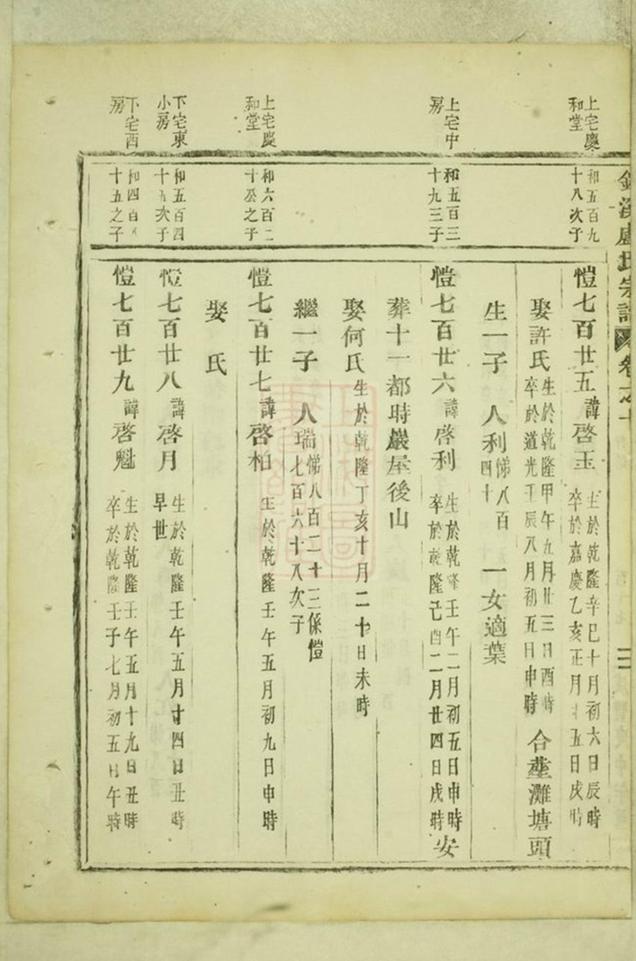 宗譜
上宅慶和堂
和五百九十八次子
愷七百廿五諱啓玉
生於乾隆辛巳十月初六日辰時
卒於嘉慶乙亥正月十五日戌時
娶許氏
生於乾隆甲午五月廿三日酉時
卒於道光壬辰八月初五日申時
合塟灘塘頭
生一子
人利
悌八百四十
一女適葉
上宅中房
和五百三十九三子
愷七百廿六諱啓利
生於乾隆壬午二月初五日申時
卒於乾隆己酉二月廿四日戌時
安
葬十一都時巖屋後山
娶何氏
生於乾隆丁亥十月二十日未時
繼一子
人瑞
悌八百二十三係愷
七百六十八次子
上宅慶和堂
和六百二十
之子
愷七百廿七諱啓柏
生於乾隆壬午五月初九日申時
娶
氏
下宅東小房
和五百四十
次子
愷七百廿八諱啓月
生於乾隆壬午五月
四日丑時
早世
下宅西房
和四百八十五之子
愷七百廿九諱啓魁
生於乾隆壬午五月十九日丑時
卒於乾隆壬子七月初五日午時